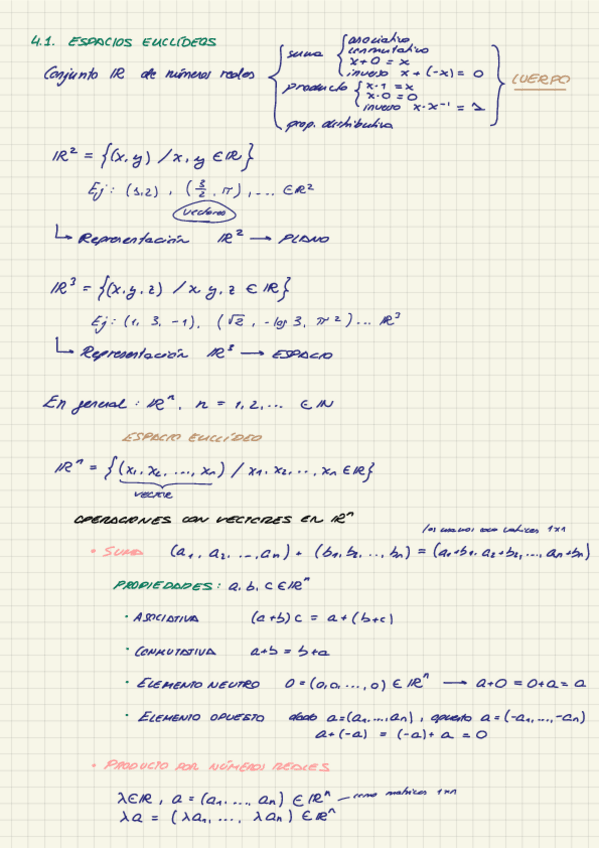 4.1. ESPACIOS EUCLÍDEOS
Conjunto ℝ de números reales
suma
asociativa
conmutativa
x + 0 = x
inverso x + (-x) = 0
producto
x·1 = x
x·0 = 0
inverso x·x⁻¹ = 1
prop. distributiva
CUERPO
ℝ² = {(x, y) / x, y ∈ ℝ}
Ej: (1,2), (3/2, π), ... ∈ ℝ²
vectores
Representación ℝ² → PLANO
ℝ³ = {(x, y, z) / x, y, z ∈ ℝ}
Ej: (1, 3, -1), (√2, -log 3, π²)... ℝ³
Representación ℝ³ → ESPACIO
En general: ℝⁿ, n = 1, 2, ... ∈ ℕ
ESPACIO EUCLÍDEO
ℝⁿ = {(x₁, x₂, ..., xₙ) / x₁, x₂, ..., xₙ ∈ ℝ}
vector
OPERACIONES CON VECTORES EN ℝⁿ
matrices 1×n
· SUMA (a₁, a₂, ..., aₙ) + (b₁, b₂, .., bₙ) = (a₁+b₁, a₂+b₂, ..., aₙ+bₙ)
PROPIEDADES: a, b, c ∈ ℝⁿ
· ASOCIATIVA (a+b)c = a+(b+c)
· CONMUTATIVA a+b = b+a
· ELEMENTO NEUTRO 0 = (0,0, ..., 0) ∈ ℝⁿ → a+0 = 0+a = a
· ELEMENTO OPUESTO dado a=(a₁, ..., aₙ), opuesto a=(-a₁, ..., -aₙ)
a+(-a) = (-a)+a = 0
· PRODUCTO POR NÚMEROS REALES
λ ∈ ℝ, a = (a₁, ..., aₙ) ∈ ℝⁿ — como matrices 1×n
λa = (λa₁, ..., λaₙ) ∈ ℝⁿ